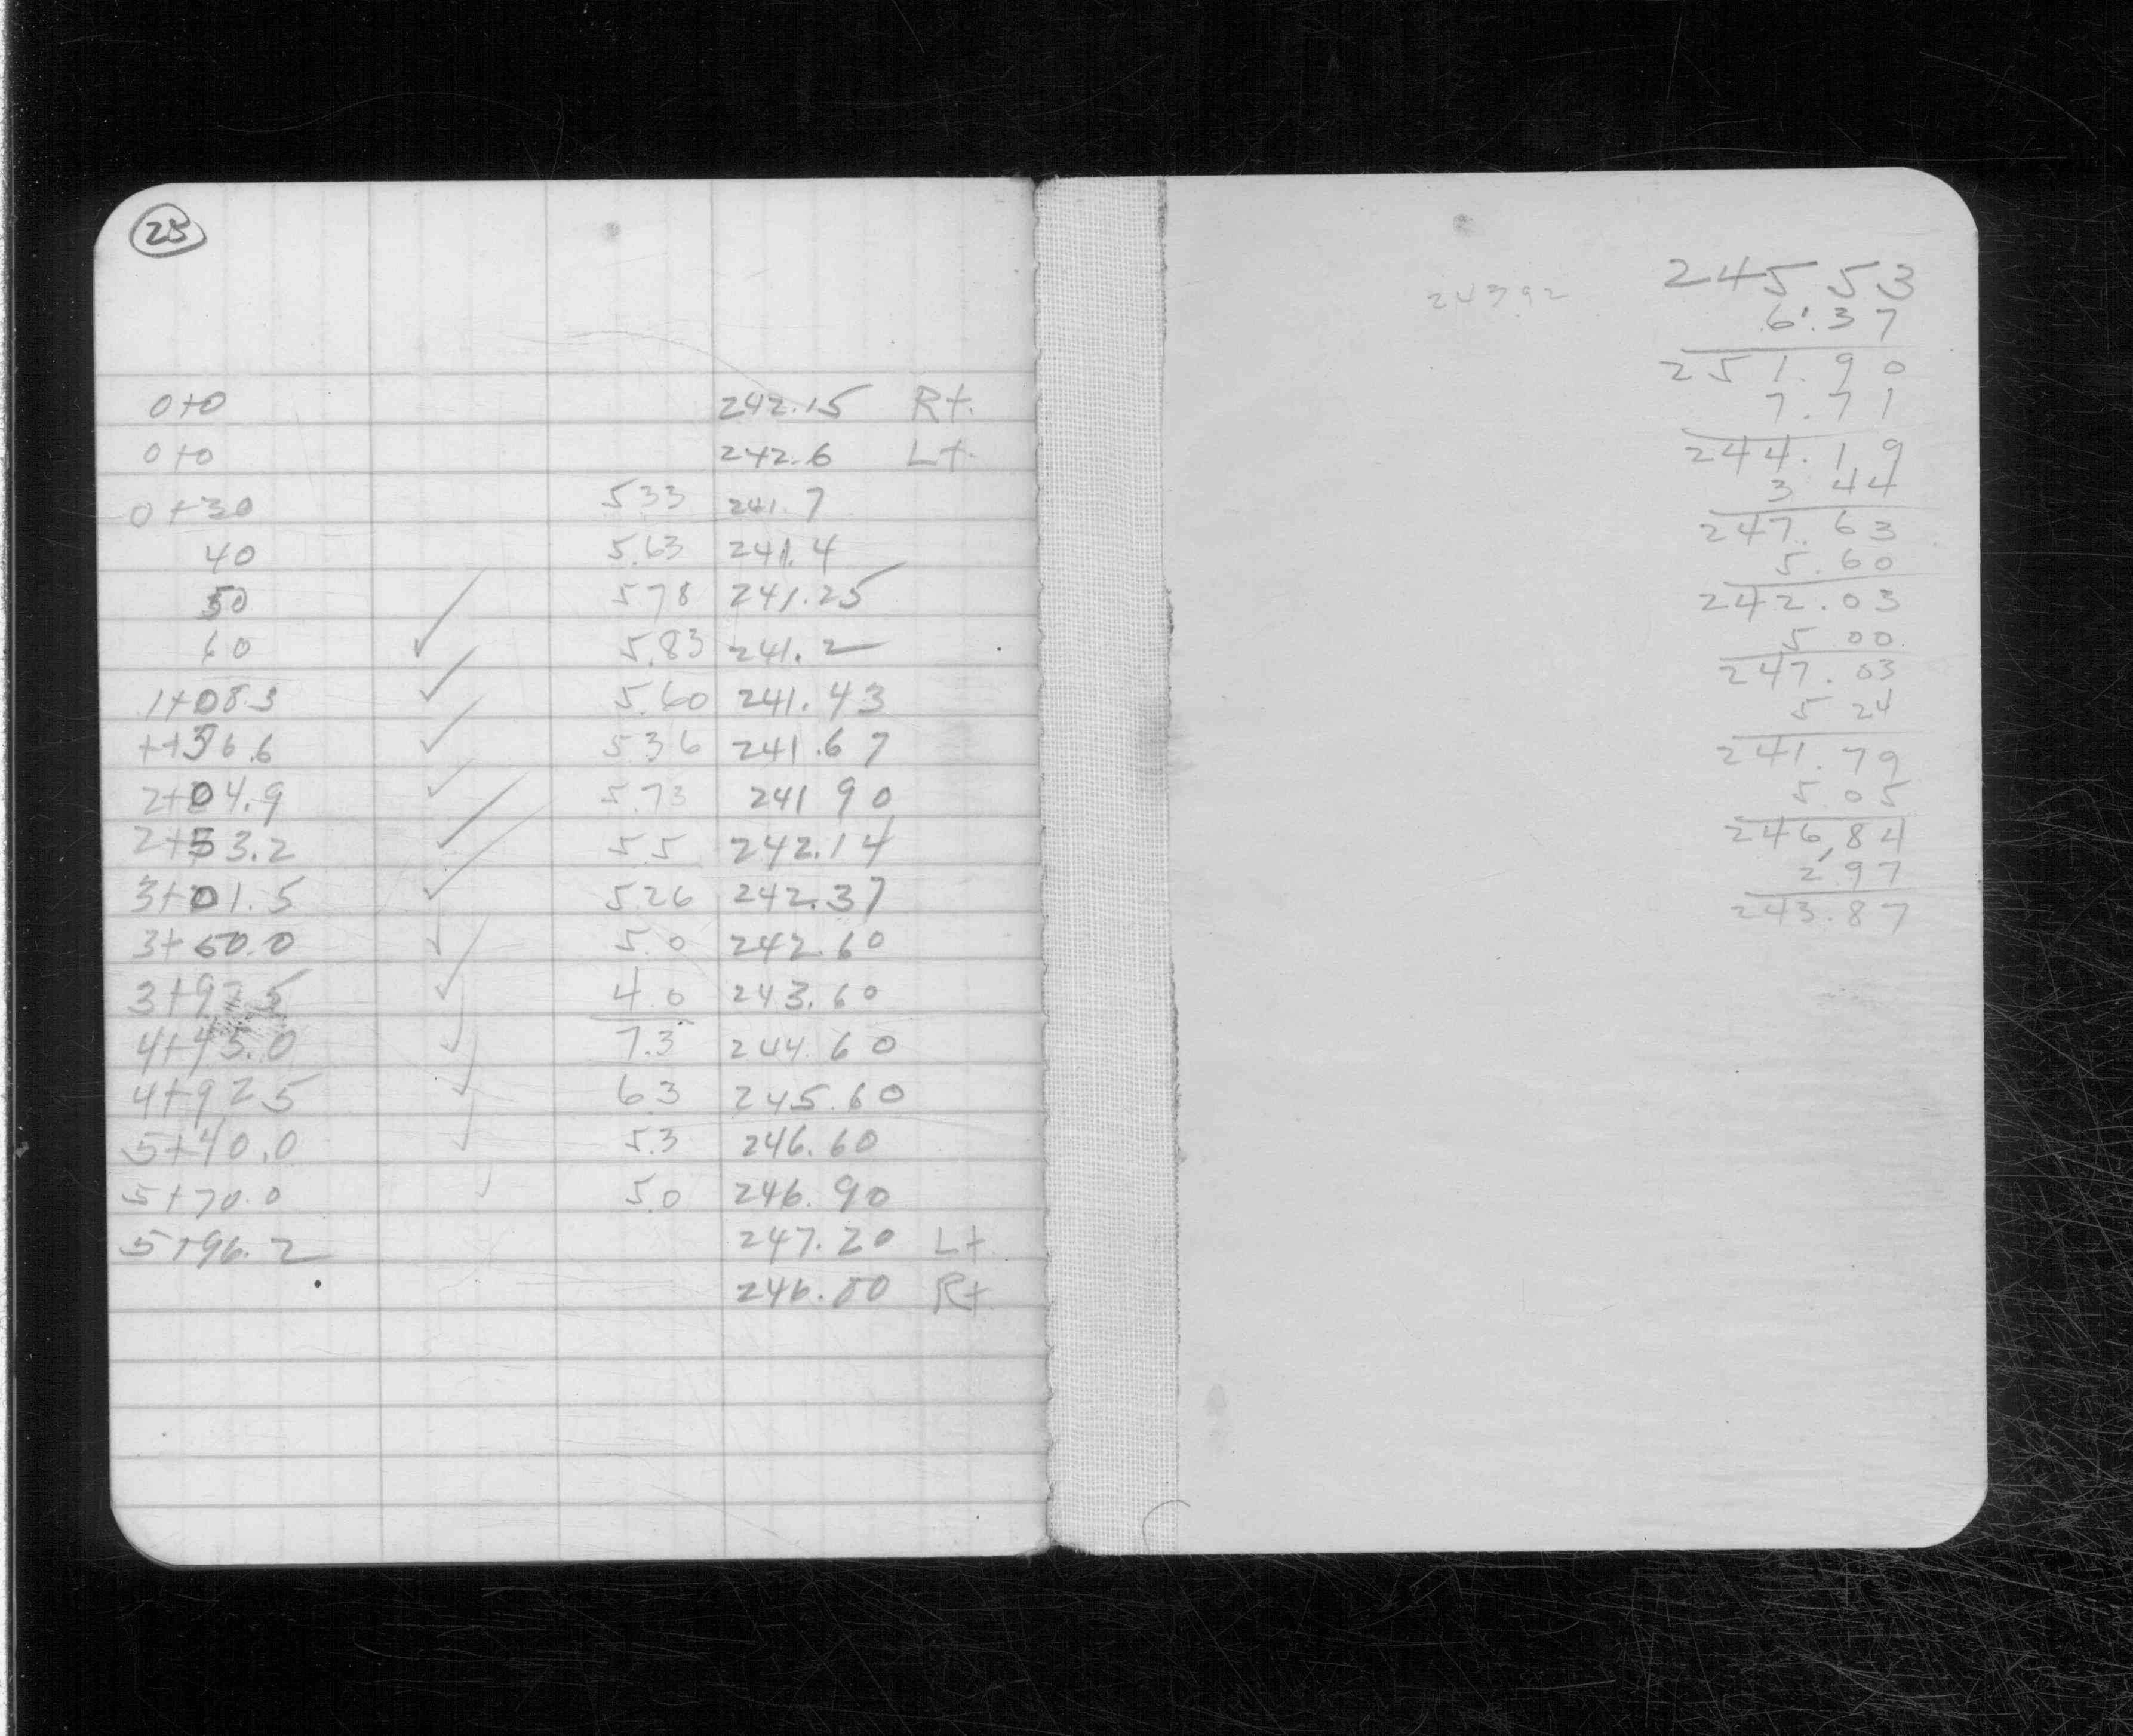 25
0+0 242.15 Rt.
0+0 242.6 Lt.
0+30 5.33 241.7
40 5.63 241.4
50 5.78 241.25
60 ✓ 5.83 241.2
1+08.3 ✓ 5.60 241.43
1+56.6 ✓ 5.36 241.67
2+04.9 ✓ 5.73 241.90
2+53.2 ✓ 5.5 242.14
3+01.5 ✓ 5.26 242.37
3+50.0 ✓ 5.0 242.60
3+97.5 ✓ 4.0 243.60
4+45.0 ✓ 7.3 244.60
4+92.5 ✓ 6.3 245.60
5+40.0 ✓ 5.3 246.60
5+70.0 ✓ 5.0 246.90
5+96.2 247.20 Lt.
246.80 Rt.
243.92
245.53
6.37
251.90
7.71
244.19
3.44
247.63
5.60
242.03
5.00
247.03
5.24
241.79
5.05
246.84
2.97
243.87